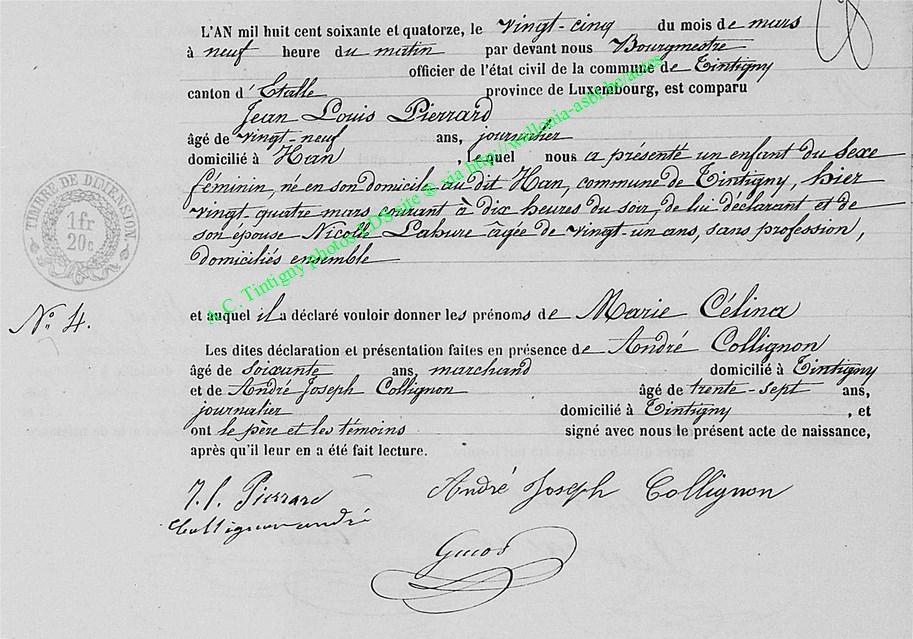 L'AN mil huit cent soixante et quatorze, le vingt-cinq du mois de mars
à neuf heure du matin par devant nous Bourgmestre
officier de l'état civil de la commune de Tintigny
canton d'Etalle province de Luxembourg, est comparu
Jean Louis Pierrard
âgé de vingt-neuf ans, journalier
domicilié à Han , lequel nous a présenté un enfant du sexe
féminin, né en son domicile, au dit Han, commune de Tintigny, hier
vingt-quatre mars courant à dix heures du soir, de lui déclarant et de
son épouse Nicolle Lahure âgée de vingt-un ans, sans profession,
domiciliés ensemble
TIMBRE DE DIMENSION
1fr
20c
A.C. Tintigny photos LDS site & via http://wallonia-asbl.be/actes
N° 4.
et auquel il a déclaré vouloir donner les prénoms de Marie Célina
Les dites déclaration et présentation faites en présence de André Collignon
âgé de soixante ans, marchand domicilié à Tintigny
et de André Joseph Collignon âgé de trente-sept ans,
journalier domicilié à Tintigny , et
ont le père et les témoins signé avec nous le présent acte de naissance,
après qu'il leur en a été fait lecture.
J. L. Pierrard André Joseph Collignon
Collignon andré